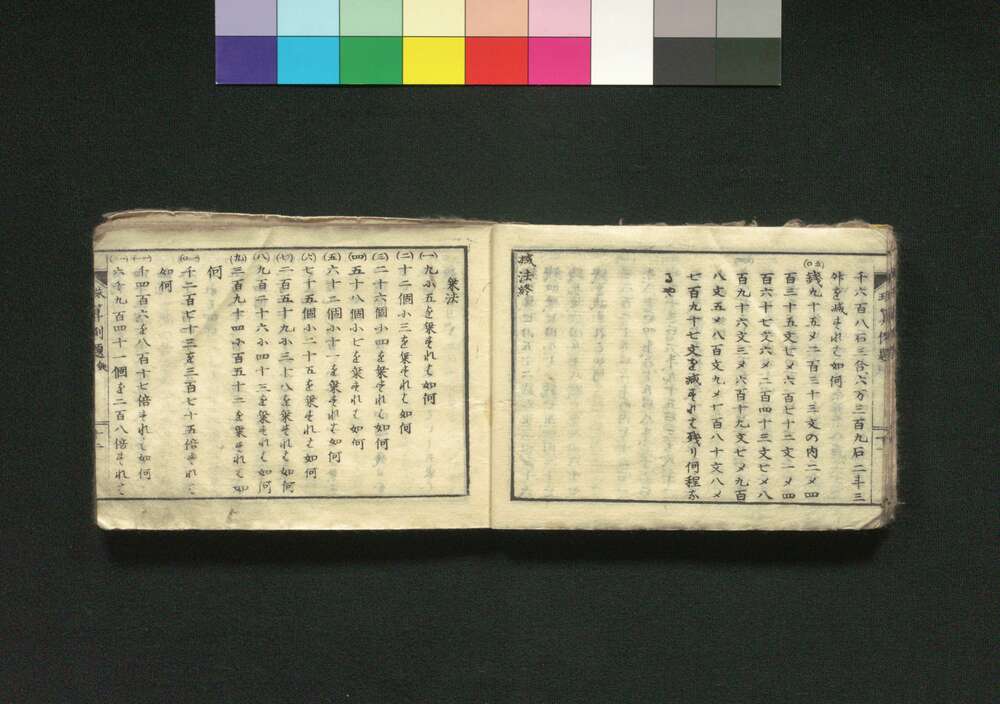 千六百八石三合六万三百九石二斗三
舛を減ずれば如何
(五〇)銭九十五〆二百三十三文の内二〆四
百三十五文七〆六百七十二文一〆四
百六十七文六〆二百四十三文七〆八
百九十六文三〆六百十九文七〆九百
八文五〆八百文九〆七百八十文八〆
七百九十七文を減ずれば残り何程な
るや
減法終
乗法
(一)九に五を乗ずれば如何
(二)十二個に三を乗ずれば如何
(三)二十六個に四を乗ずれば如何
(四)五十八個に七を乗ずれば如何
(五)六十二個に十一を乗ずれば如何
(六)七十五個に二十五を乗ずれば如何
(七)二百五十九に三十八を乗ずれば如何
(八)九百二十六に四十三を乗ずれば如何
(九)三百九十四に百五十二を乗ずれば如
何
(一〇)千二百七十三を三百七十五倍すれば
如何
(一一)千四百六を八百十七倍すれば如何
六千九百四十一個を二百八倍すれば